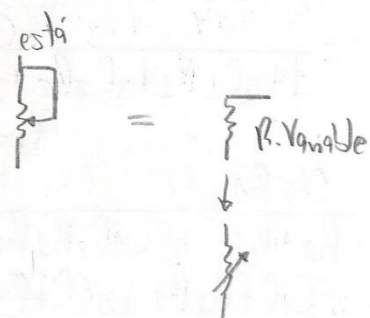 está
=
R. Variable